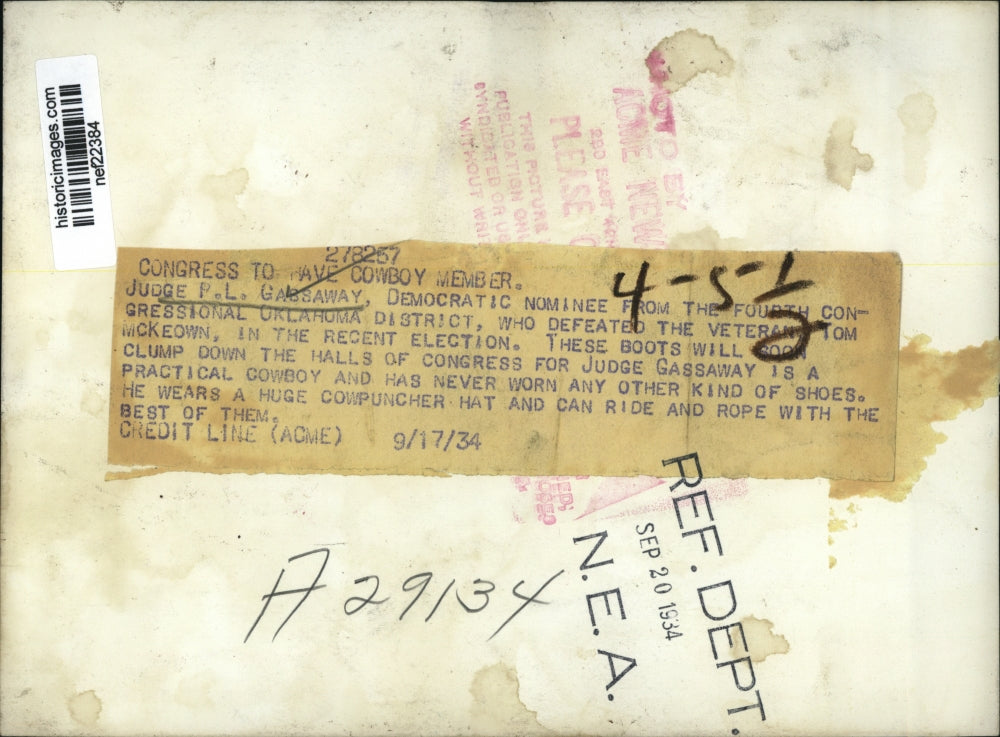 historicimages.com
nef22384
PHOTO BY
ACME NEW
220 EAST
PLEASE
THIS PICTURE
PUBLICATION ON
SYNDICATED OR US
WITHOUT WRI
278267
CONGRESS TO HAVE COWBOY MEMBER.
JUDGE P.L. GASSAWAY, DEMOCRATIC NOMINEE FROM THE FOURTH CON-
GRESSIONAL OKLAHOMA DISTRICT, WHO DEFEATED THE VETERAN TOM
MCKEOWN, IN THE RECENT ELECTION. THESE BOOTS WILL SOON
CLUMP DOWN THE HALLS OF CONGRESS FOR JUDGE GASSAWAY IS A
PRACTICAL COWBOY AND HAS NEVER WORN ANY OTHER KIND OF SHOES.
HE WEARS A HUGE COWPUNCHER HAT AND CAN RIDE AND ROPE WITH THE
BEST OF THEM.
CREDIT LINE (ACME) 9/17/34
4-5-1
2
REF. DEPT.
SEP 20 1934
N.E.A.
A29134